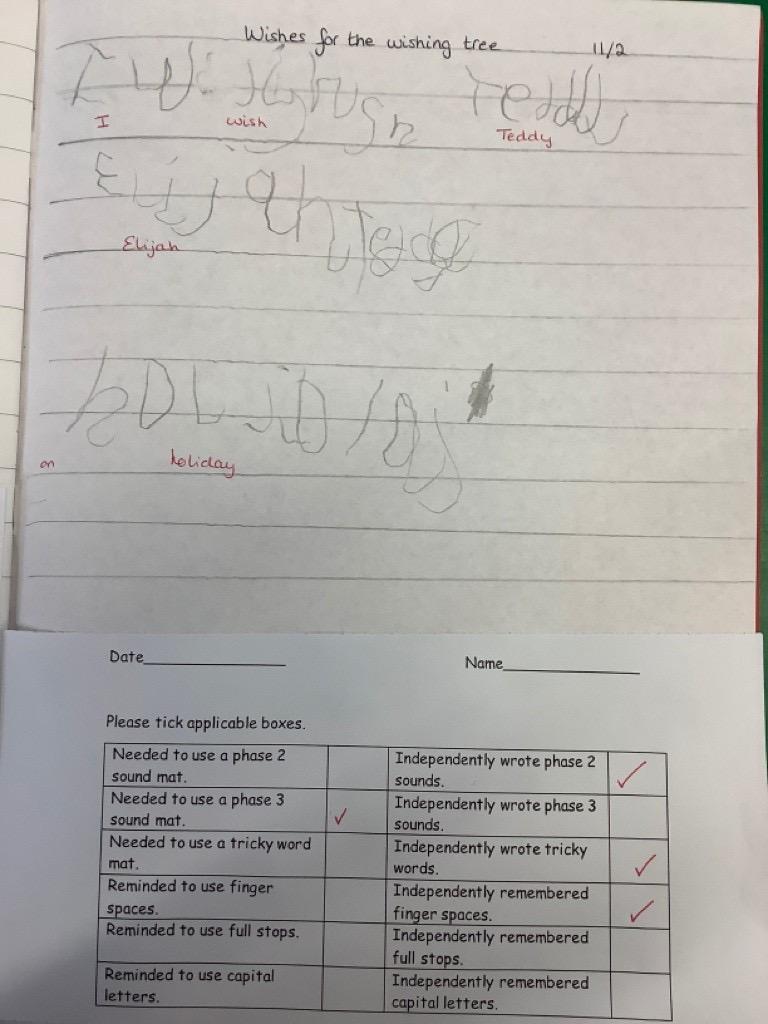 Wishes for the wishing tree 11/2
I Teddy
I wish Teddy
Elijah
Elijah
on holiday
Date Name
Please tick applicable boxes.
Needed to use a phase 2 Independently wrote phase 2
sound mat. sounds.
Needed to use a phase 3 Independently wrote phase 3
sound mat. sounds.
Needed to use a tricky word Independently wrote tricky
mat. words.
Reminded to use finger Independently remembered
spaces. finger spaces.
Reminded to use full stops. Independently remembered
full stops.
Reminded to use capital Independently remembered
letters. capital letters.